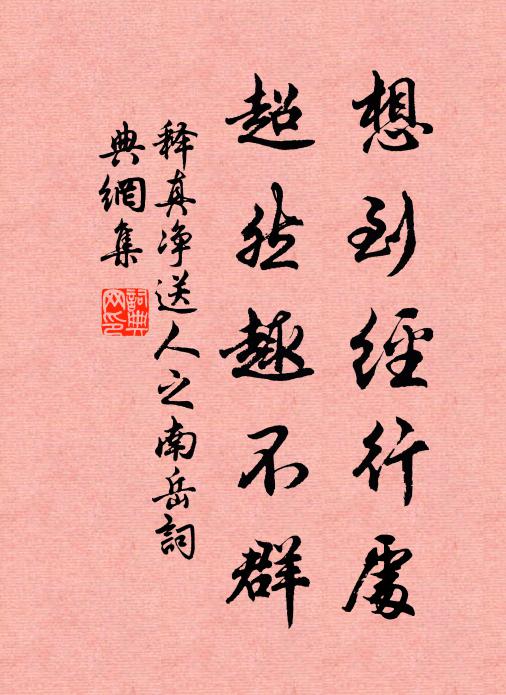 想到經行處
超然趣不群
释真净送人之南岳詞
典網集
詞典网印